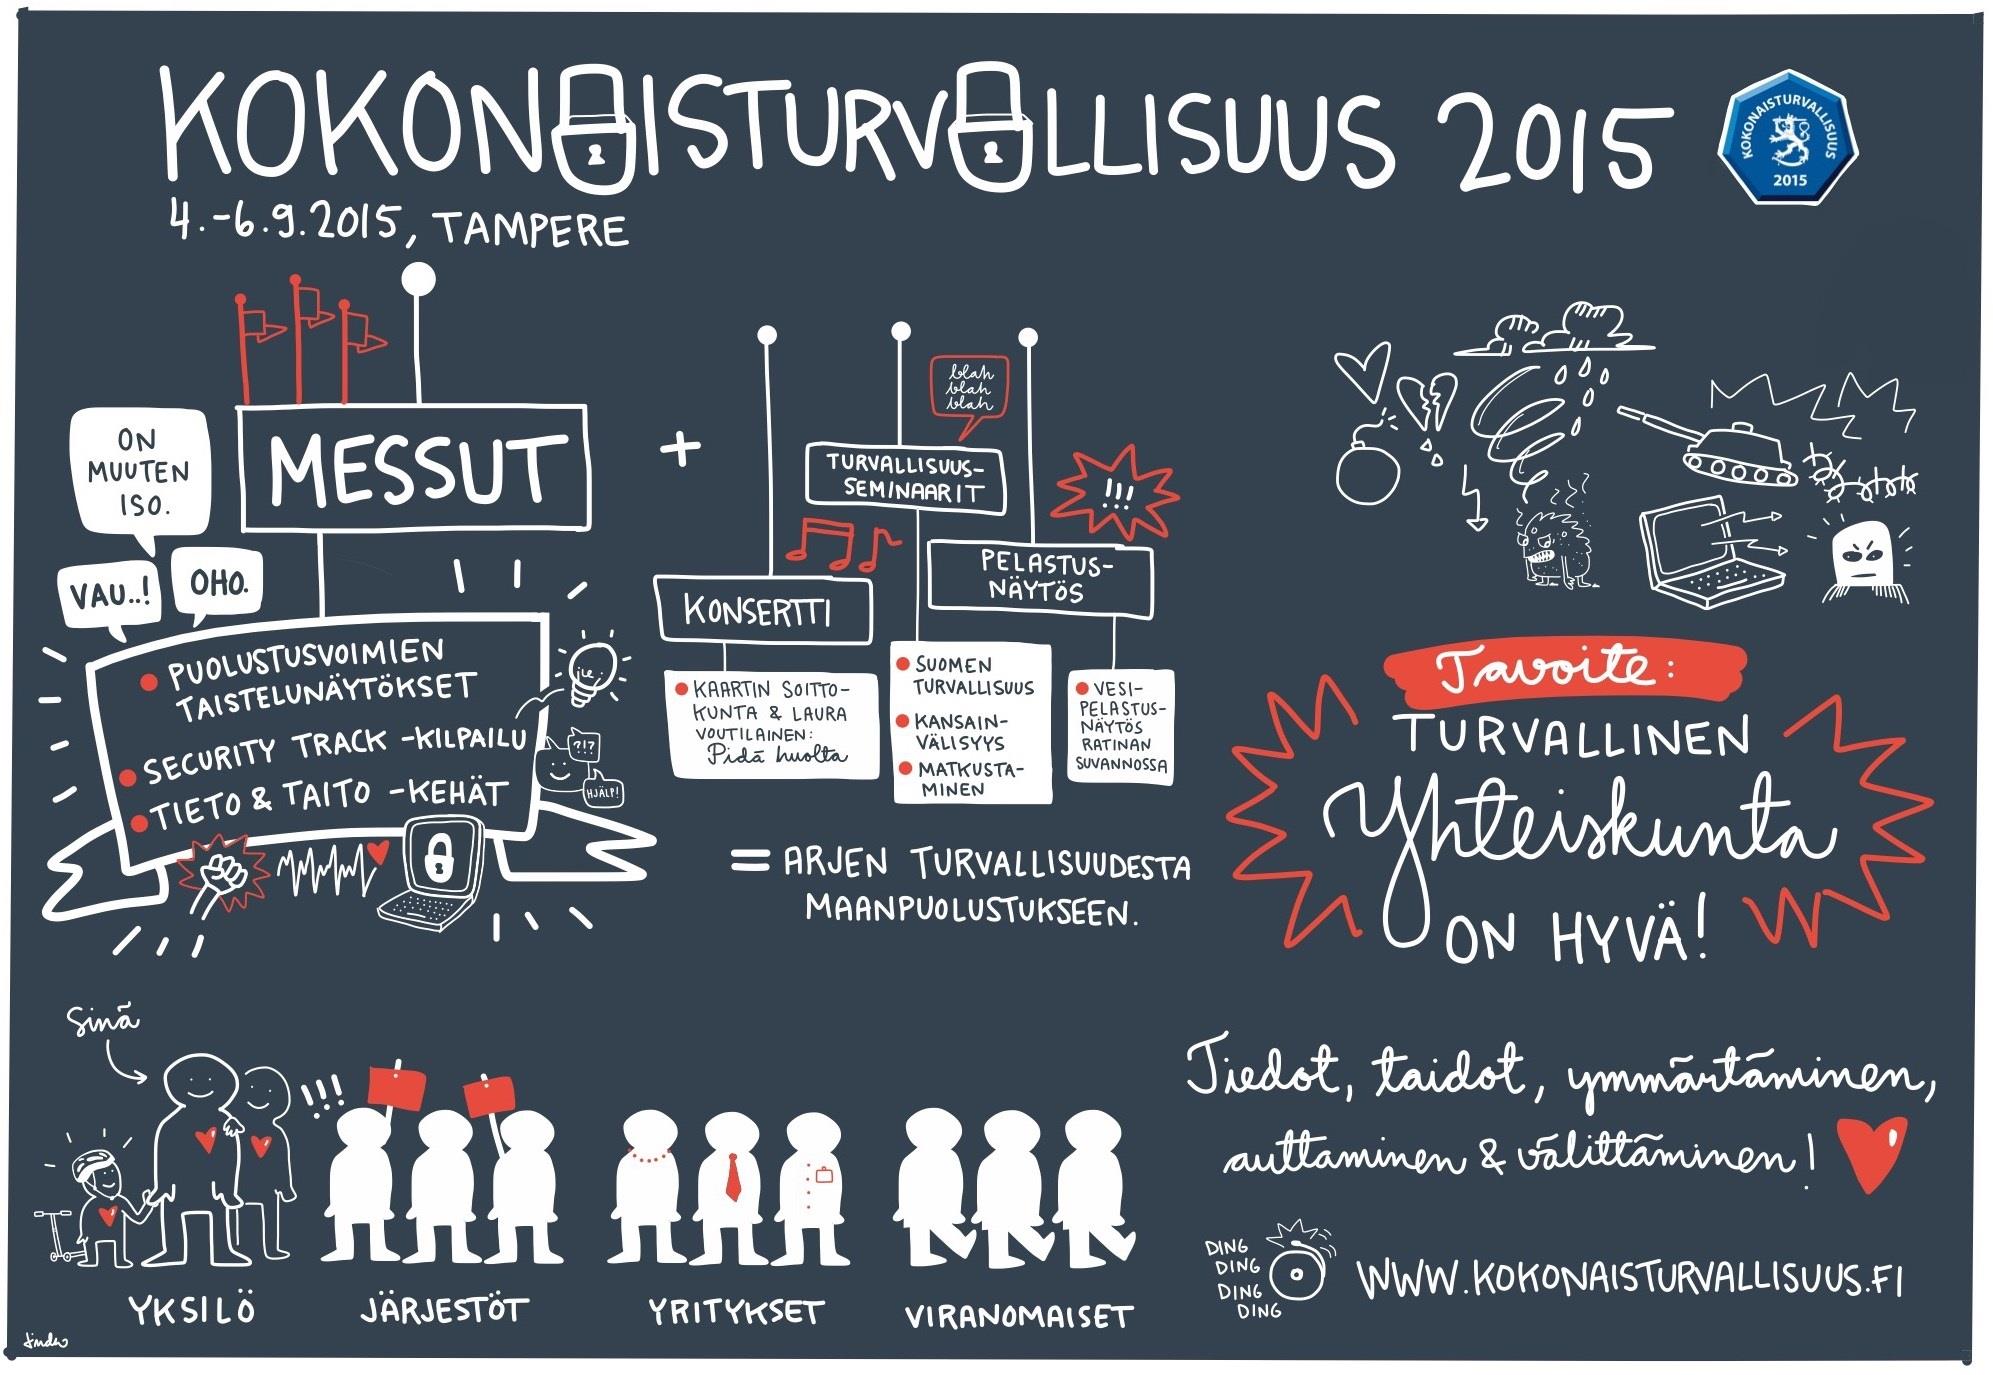 KOKONAISTURVALLISUUS 2015
KOKONAISTURVALLISUUS
2015
4.-6.9.2015, TAMPERE
MESSUT
ON
MUUTEN
ISO.
VAU..!
OHO.
PUOLUSTUSVOIMIEN
TAISTELUNÄYTÖKSET
SECURITY TRACK -KILPAILU
TIETO & TAITO -KEHÄT
?!?
HJÄLP!
+
blah
blah
blah
TURVALLISUUS-
SEMINAARIT
!!!
PELASTUS-
NÄYTÖS
KONSERTTI
KAARTIN SOITTO-
KUNTA & LAURA
VOUTILAINEN:
Pidä huolta
SUOMEN
TURVALLISUUS
KANSAIN-
VÄLISYYS
MATKUSTA-
MINEN
VESI-
PELASTUS-
NÄYTÖS
RATINAN
SUVANNOSSA
= ARJEN TURVALLISUUDESTA
MAANPUOLUSTUKSEEN.
Tavoite:
TURVALLINEN
Yhteiskunta
ON HYVÄ!
Sinä
!!!
YKSILÖ
JÄRJESTÖT
YRITYKSET
VIRANOMAISET
Tiedot, taidot, ymmärtäminen,
auttaminen & välittäminen!
DING
DING
DING
DING
WWW.KOKONAISTURVALLISUUS.FI